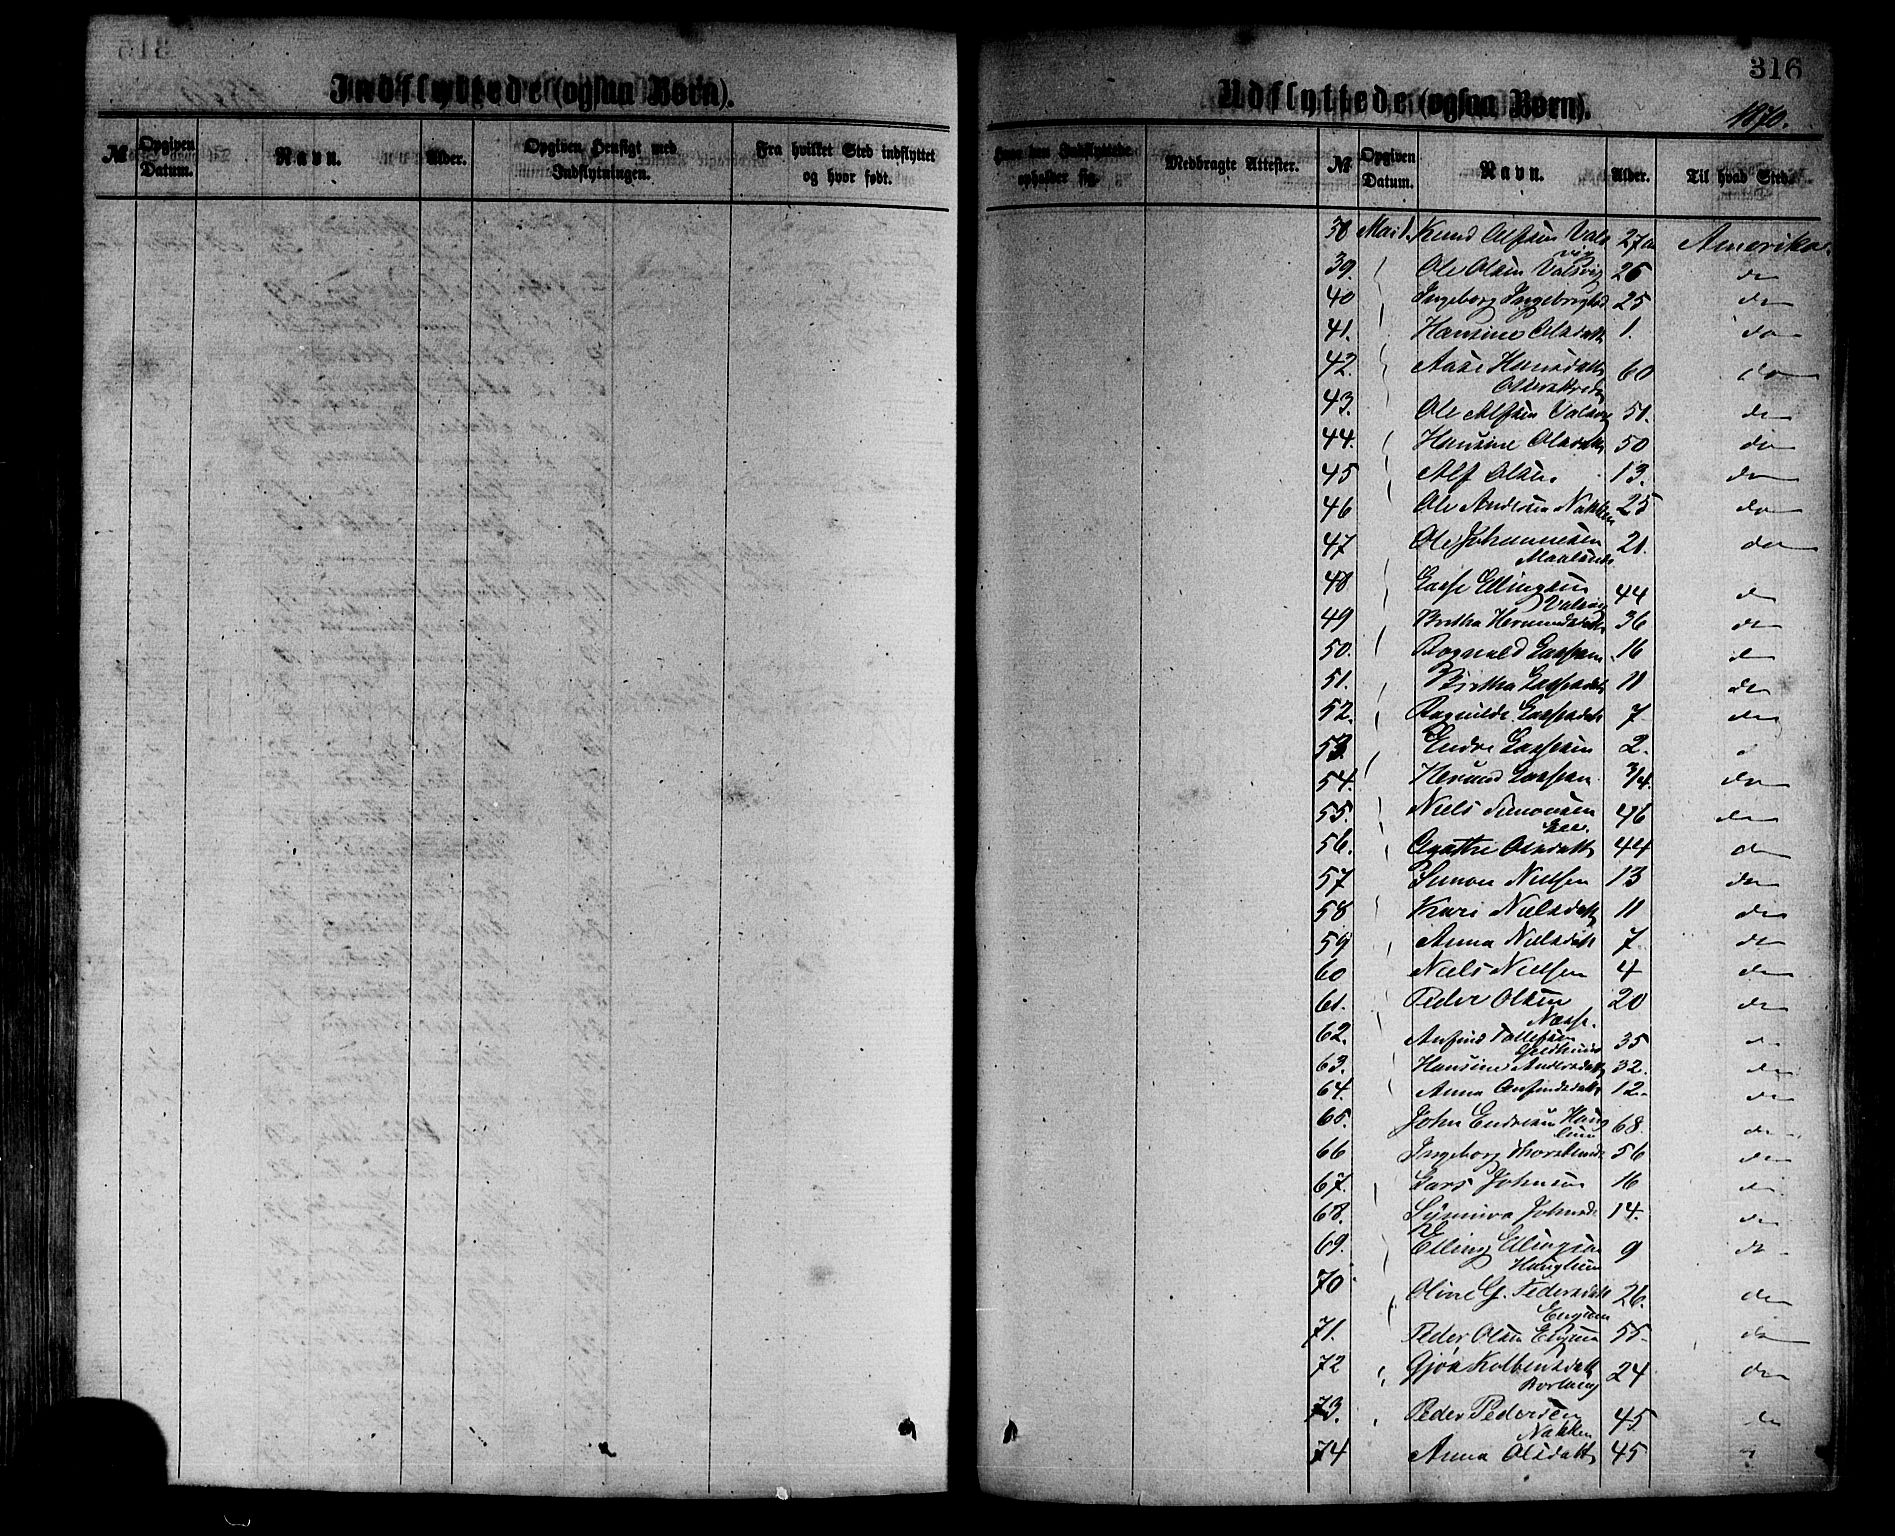 Indflyttede (ogsaa Børn).
№ Opgiven Datum. Navn. Alder. Opgiven Hensigt med Indflytningen. Fra hvilket Sted indflyttet og hvor født.
316
Udflyttede (ogsaa Børn).
1870.
Hvor den Indflyttede opholder sig. Medbragte Attester. № Opgiven Datum. Navn. Alder. Til hvad Sted.
38 Mai 1. Knud Olsen Vals 27 Amerika.
vig
39. Ole Olsen Valsvig 26 do
40 Ingeborg Ingebrigtsd 25 do
41. Hansine Olsdatt 1. do
42. Aase Hansdatt 60 do
43. Ole Alfsen Valsvig 51. do
44. Hansine Olsdatt 50 do
45 Alf Olsen 13. do
46 Ole Andersen Nakken 25 do
47 Ole Johannesen 21. do
48 Lasse Ellingsen 44 do
Valsvig
49 Brithe 36 do
50. Rognald Lassesen 16 do
51. Birtha Lassesdatt 11 do
52. Ragnilde Lassesdatt 7 do
53. Endre Lassesen 2.
54. Lassesen 3/4. do
55. Niels Simonsen 46 do
56. Agathe Olsdatt 44 do
57 Simon Nielsen 13 do
58 Kari Nielsdatt 11 do
59 Anna Nielsdatt 7. do
60 Niels Nielsen 4 do
61. Peder Olsen 20 do
Næsse.
62. Anfind Tollefsen 35 do
63. Hansine Andersdatt 32. do
64. Anna Anfindsdatt 12. do
65. John Endresen Haug 68. do
66 Ingeborg 56 do
67. Lars Johnsen 16 do
68. Synneva Johnsd 14. do
69. Elling Ellingsen 9 do
70 Oline G. Pedersdatt 26. do
71. Peder Olsen 55. do
72 Gjøa Kolbensdatt 24 do
73. Peder Pedersen 45 do
Nakken
74 Anna Olsdatt 45